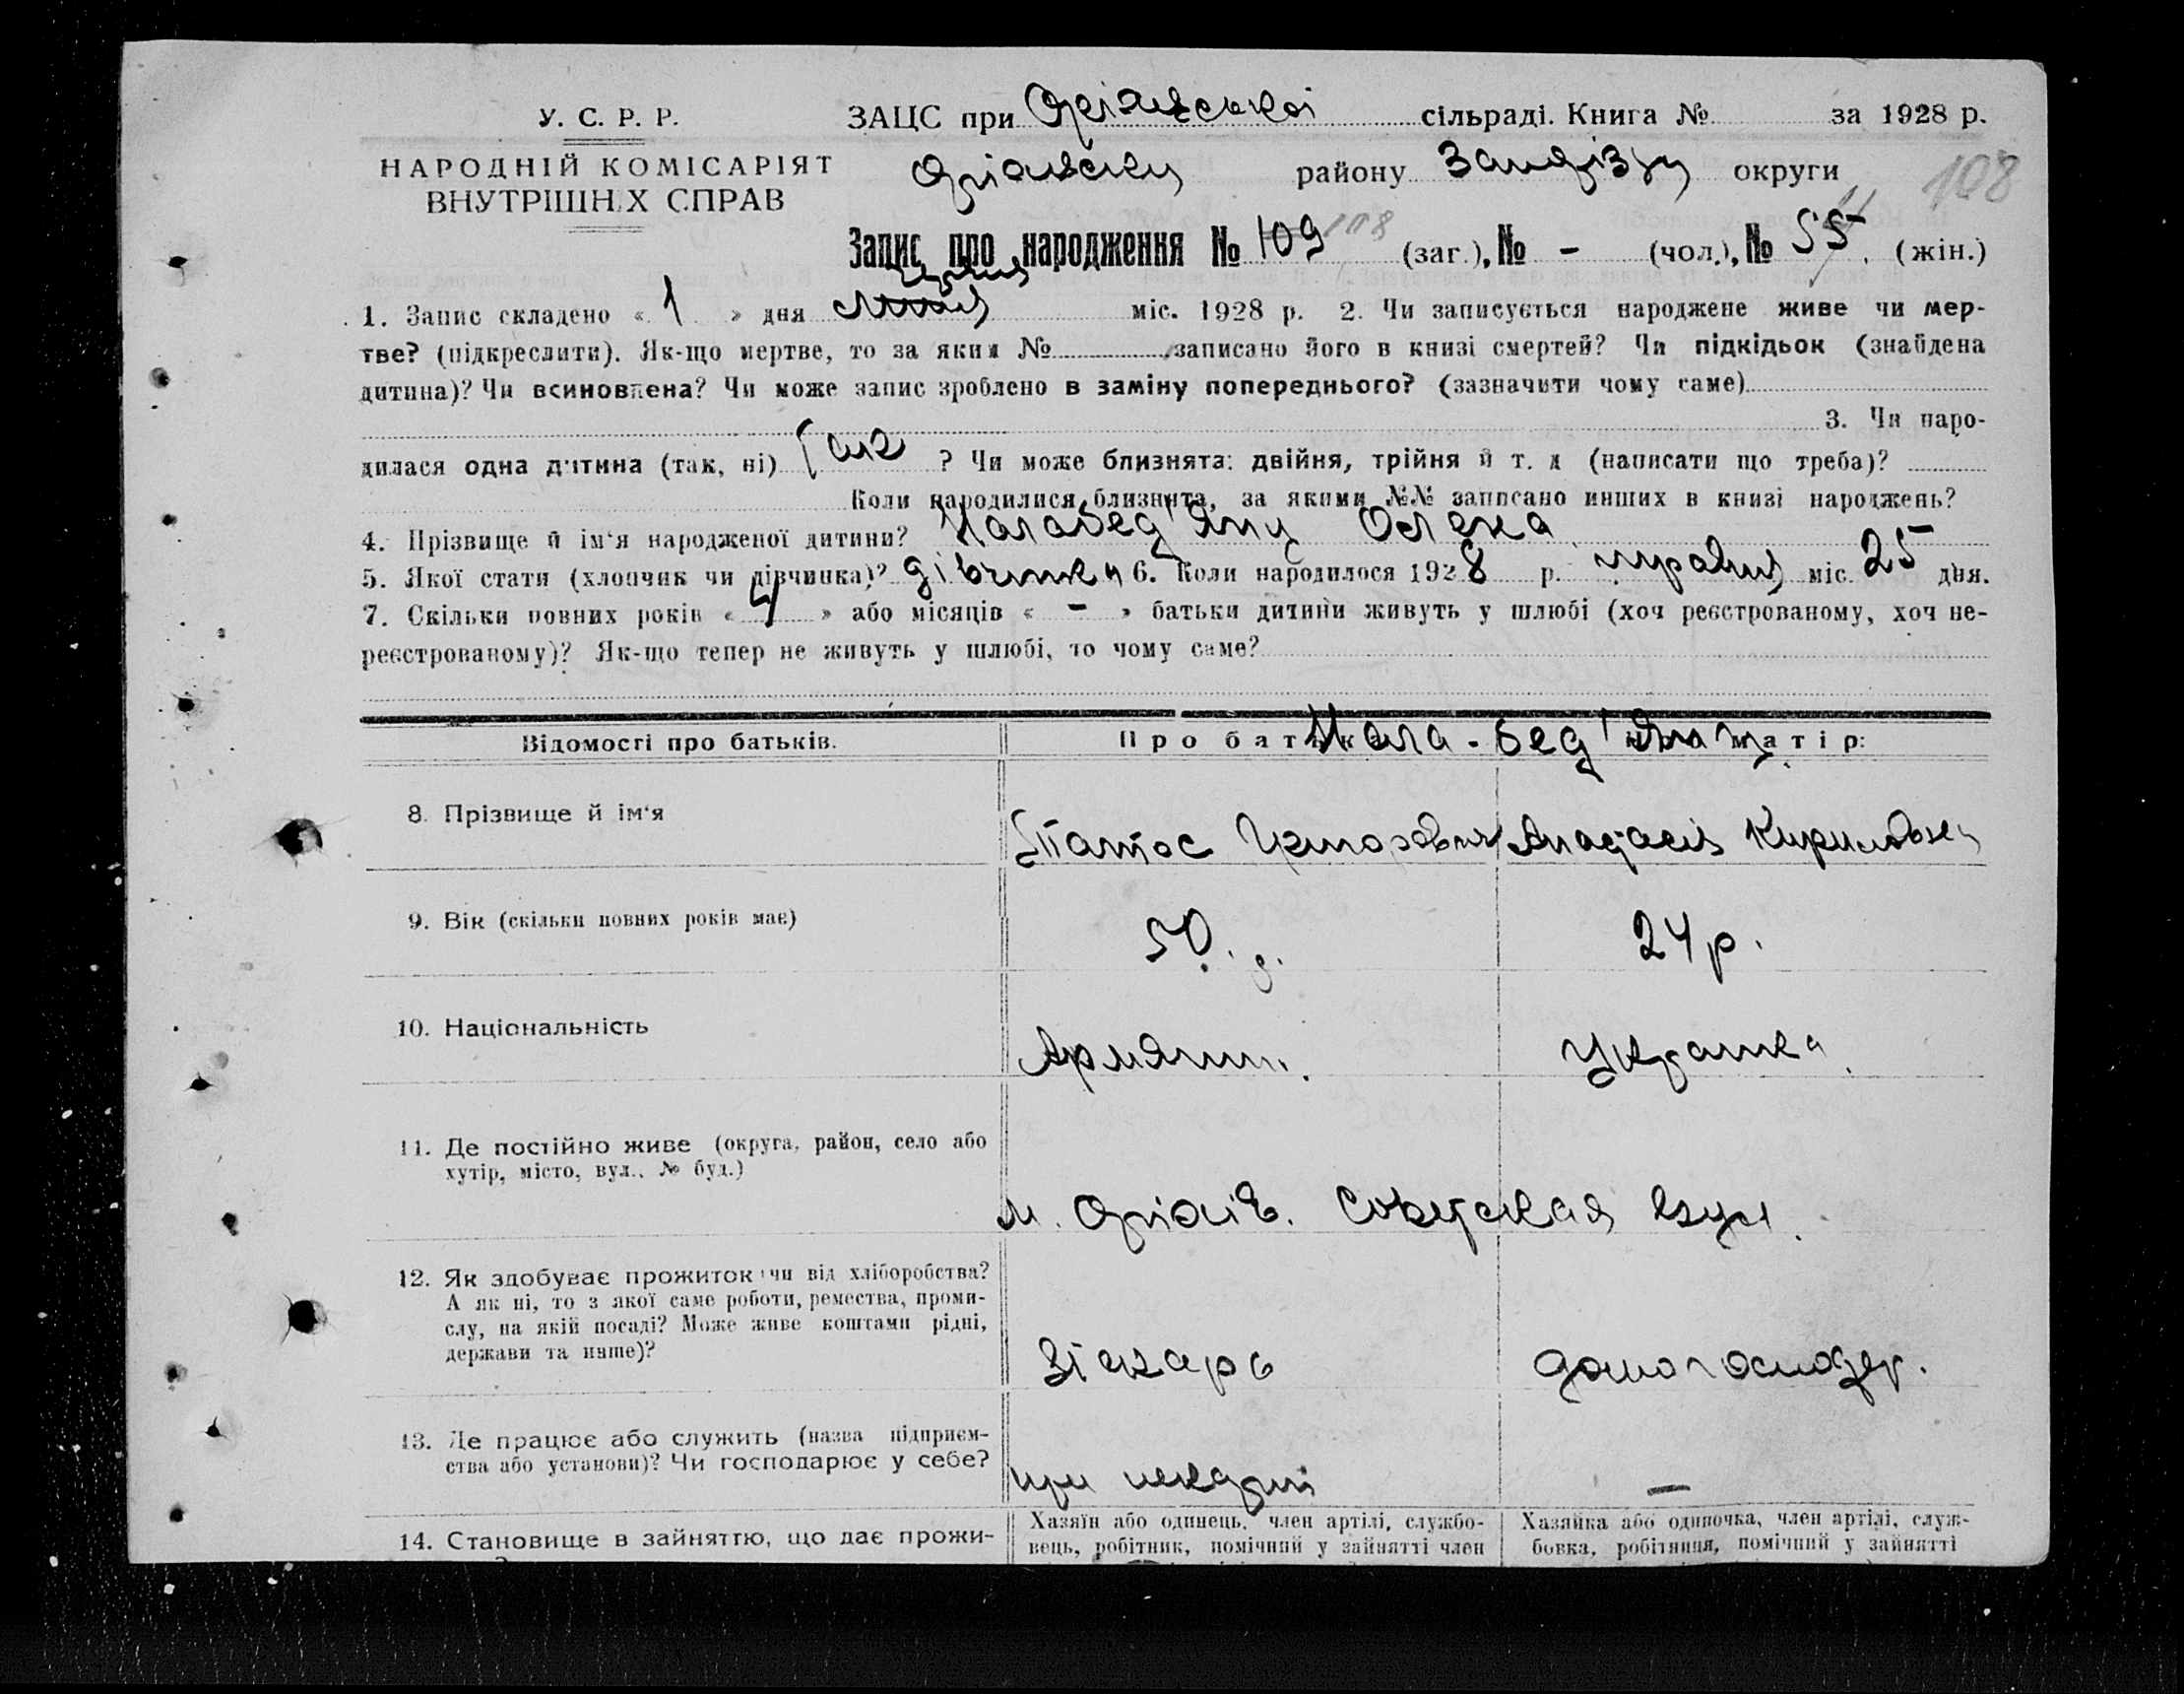 У. С. Р. Р.
НАРОДНІЙ КОМІСАРІЯТ
ВНУТРІШНІХ СПРАВ
ЗАЦС при Оріхівської сільраді. Книга № за 1928 р.
Оріхівську району Запоріз у округи
108
Запис про народження № 109 108 (заг.), № - (чол.), № 55 (жін.)
червня
1. Запис складено « 1 » дня міс. 1928 р. 2. Чи записується народжене живе чи мер-
тве? (підкреслити). Як-що мертве, то за яким № записано його в книзі смертей? Чи підкідьок (знайдена
дитина)? Чи всиновлена? Чи може запис зроблено в заміну попереднього? (зазначити чому саме)
3. Чи наро-
дилася одна дитина (так, ні) так ? Чи може близнята: двійня, трійня й т. д (написати що треба)?
Коли народилися близнята, за якими №№ записано инших в книзі народжень?
4. Прізвище й ім'я народженої дитини? Олена
5. Якої стати (хлопчик чи дівчинка)? дівчинка 6. Коли народилося 1928 р. травня міс. 25 дня.
7. Скільки повних років « 4 » або місяців « - » батьки дитини живуть у шлюбі (хоч реєстрованому, хоч не-
реєстрованому)? Як-що тепер не живуть у шлюбі, то чому саме?
Відомості про батьків. Про батька: Про матір:
8. Прізвище й ім'я Кирилівна
9. Вік (скільки повних років має) 50. 24 р.
10. Національність Армянин. Українка
11. Де постійно живе (округа, район, село або
хутір, місто, вул., № буд.)
м. Оріхів. Советская вул.
12. Як здобуває прожиток: чи від хліборобства?
А як ні, то з якої саме роботи, ремества, проми-
слу, на якій посаді? Може живе коштами рідні,
держави та инше)?
Пекарь домогосподар.
13. Де працює або служить (назва підприєм-
ства або установи)? Чи господарює у себе?
при пекарні —
14. Становище в зайняттю, що дає прожи-
Хазяїн або одинець, член артілі, службо-
вець, робітник, помічний у зайнятті член
Хазяйка або одиночка, член артілі, служ-
бовка, робітниця, помічний у зайнятті